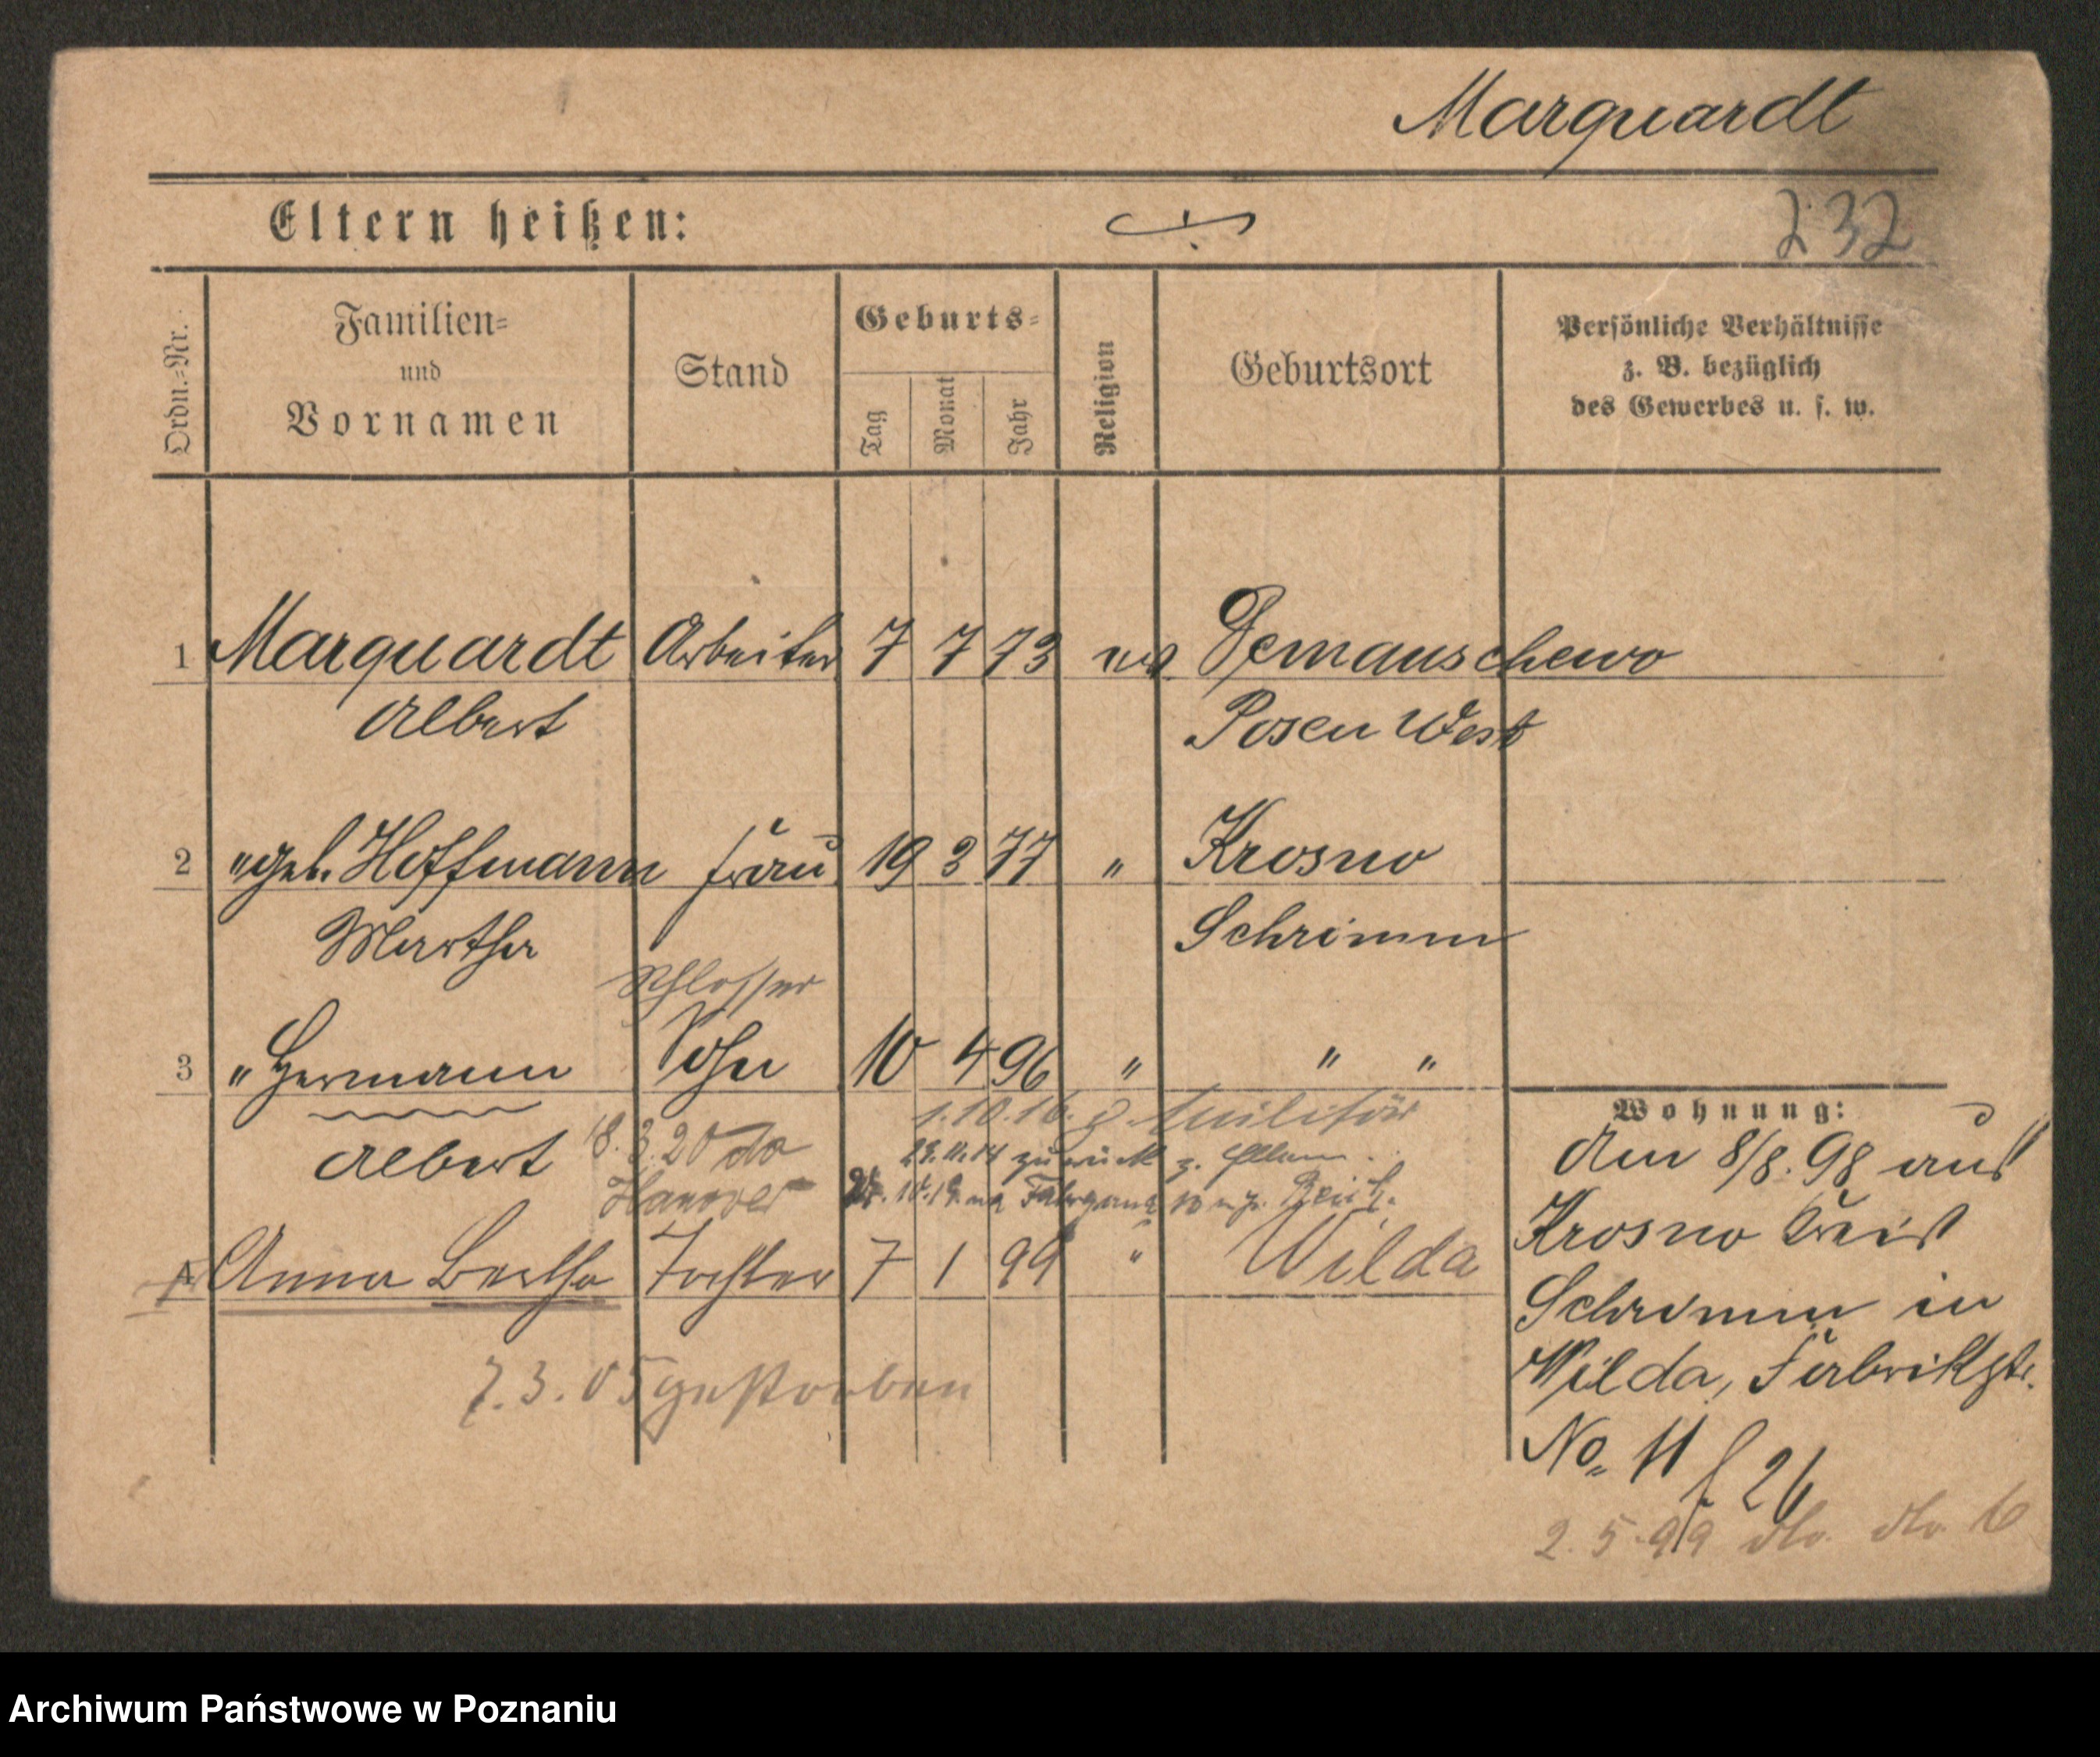 Marquardt
Eltern heißen:
232
Ordn.-Nr.
Familien-
und
Vornamen
Stand
Geburts-
Tag
Monat
Jahr
Religion
Geburtsort
Persönliche Verhältnisse
z. B. bezüglich
des Gewerbes u. s. w.
1 Marquardt Arbeiter 7 7 73 Demanschewo
Albert Posen West
2 " geb. Hoffmann Frau 19 3 77 " Krosno
Martha Schrimm
Schlosser
3 " Hermann Sohn 10 4 96 " " "
Albert
1.10.16. z. Militär
18.3.20
Hanover
zurück z.
4 Anna Bertha Tochter 7 1 99 " Wilda
7.3.05 gestorben
Wohnung:
Am 8/8.98 aus
Krosno Kreis
Schrimm in
Wilda, Fabrikstr.
No. 11 f 26
2.5.99 do. do. 6
Archiwum Państwowe w Poznaniu